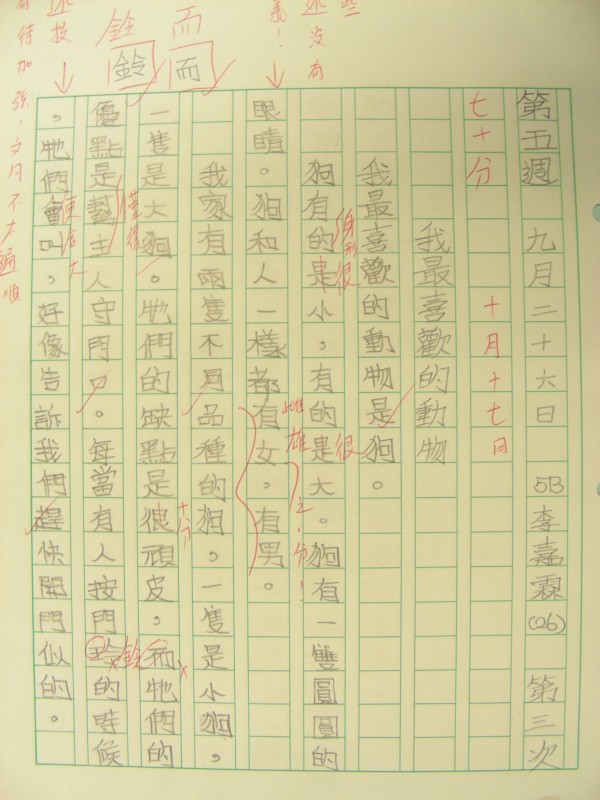 第五週 九月二十六日 5B李嘉霖(26) 第三次
七十分 十月十七日
我最喜歡的動物
我最喜歡的動物是狗。
狗有的是小,有的是大。狗有一雙圓圓的
身形很
很
眼睛。狗和人一樣都有女,有男。
雌雄之分!
我家有兩隻不同品種的狗,一隻是小狗,
一隻是大狗。牠們的缺點是很頑皮,而牠們的
十分
優點是替主人守門口。每當有人按門鈴的時候
懂得
。牠們會叫。好像告訴我們趕快開門似的。
便
大
而
鈴
還沒有
些
有待加強,文句不大通順